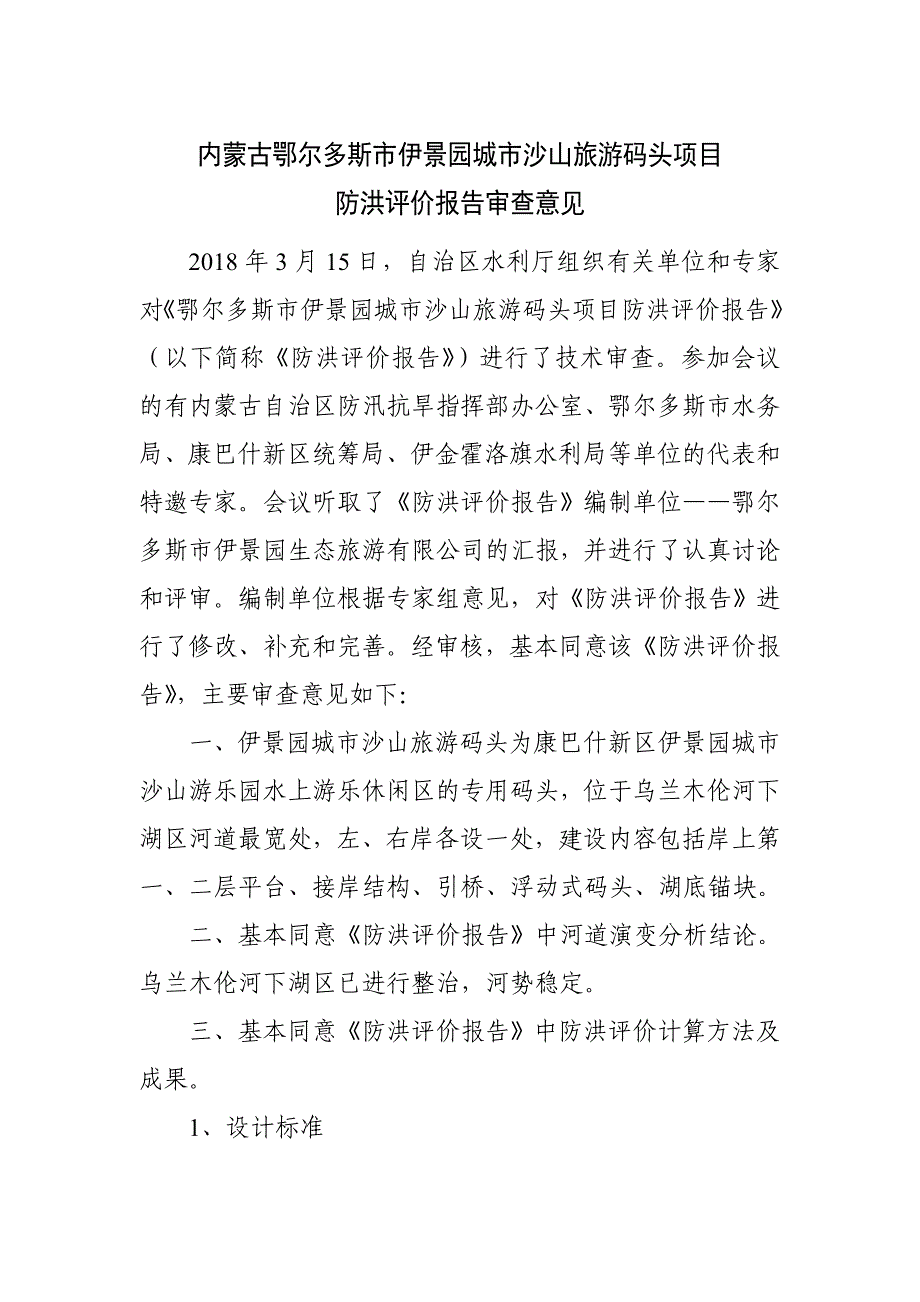 内蒙古鄂尔多斯市伊景园城市沙山旅游码头项目
防洪评价报告审查意见
2018 年 3 月 15 日，自治区水利厅组织有关单位和专家
对《鄂尔多斯市伊景园城市沙山旅游码头项目防洪评价报告》
（以下简称《防洪评价报告》）进行了技术审查。参加会议
的有内蒙古自治区防汛抗旱指挥部办公室、鄂尔多斯市水务
局、康巴什新区统筹局、伊金霍洛旗水利局等单位的代表和
特邀专家。会议听取了《防洪评价报告》编制单位——鄂尔
多斯市伊景园生态旅游有限公司的汇报，并进行了认真讨论
和评审。编制单位根据专家组意见，对《防洪评价报告》进
行了修改、补充和完善。经审核，基本同意该《防洪评价报
告》，主要审查意见如下：
一、伊景园城市沙山旅游码头为康巴什新区伊景园城市
沙山游乐园水上游乐休闲区的专用码头，位于乌兰木伦河下
湖区河道最宽处，左、右岸各设一处，建设内容包括岸上第
一、二层平台、接岸结构、引桥、浮动式码头、湖底锚块。
二、基本同意《防洪评价报告》中河道演变分析结论。
乌兰木伦河下湖区已进行整治，河势稳定。
三、基本同意《防洪评价报告》中防洪评价计算方法及
成果。
1、设计标准